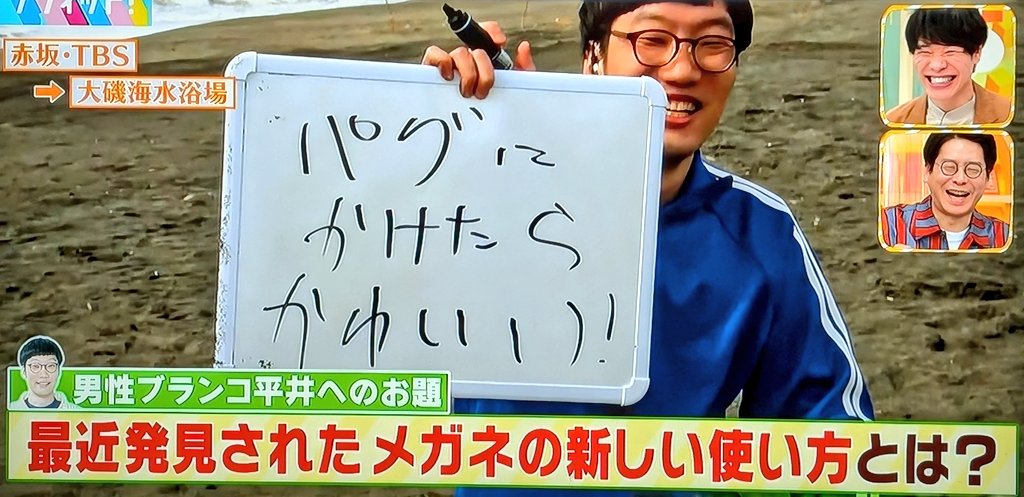 赤坂・TBS
➡大磯海水浴場
パグに
かけたら
かわいいい!
男性ブランコ平井へのお題
最近発見されたメガネの新しい使い方とは?